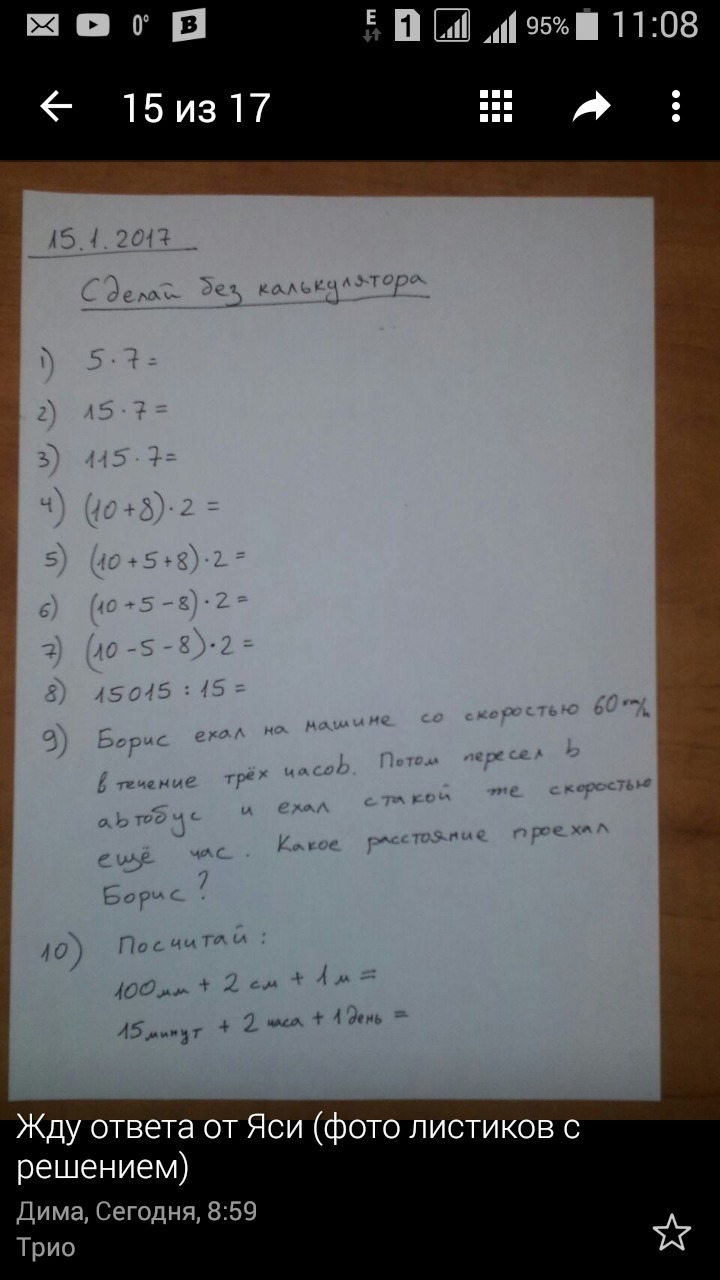 0° B E 1 95% 11:08
15 из 17
15.1.2017
Сделай без калькулятора
1) 5·7=
2) 15·7=
3) 115·7=
4) (10+8)·2=
5) (10+5+8)·2=
6) (10+5-8)·2=
7) (10-5-8)·2=
8) 15015:15=
9) Борис ехал на машине со скоростью 60 км/ч
в течение трёх часов. Потом пересел в
автобус и ехал с такой же скоростью
ещё час. Какое расстояние проехал
Борис?
10) Посчитай:
100мм + 2 см + 1 м =
15минут + 2 часа + 1 день =
Жду ответа от Яси (фото листиков с
решением)
Дима, Сегодня, 8:59
Трио